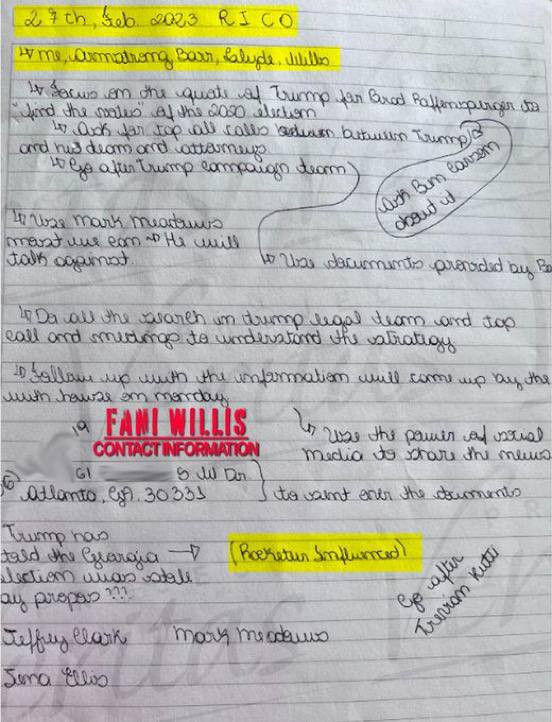 27th, Feb. 2023 R I C O
↳ me, Armstrong Barr, Clyde, Willis
↳ Focus on the quote of Trump for Brad Raffensperger to
"find the votes" of the 2020 election
↳ Ask for tap all calls between Trump
and his team and attorneys
↳ Go after Trump campaign team
Ask Ben
about it
↳ Use Mark Meadows
most we can → He will
talk against
↳ Use documents provided by
↳ Do all the search in trump legal team and tap
call and meetings to understand the strategy
↳ Follow up with the information will come up by the
with house on monday
19
FANI WILLIS
CONTACT INFORMATION
↳ Use the power of social
media to share the news
61 S W Dr
Atlanta, Ga, 30331
to sent over the documents
Trump has
told the Georgia →
election was stole
by propos ???
Go after
Kutti
Jeffrey Clark Mark Meadows
Jena Ellis